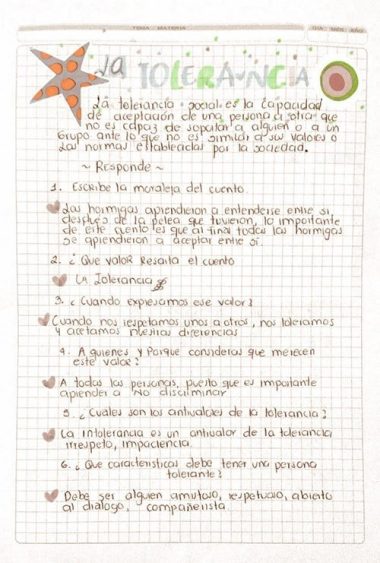 TEMA MATERIA DIA MES AÑO
LA TOLERANCIA
La tolerancia social es la capacidad
de aceptación de una persona a otra que
no es capaz de soportar a alguien o a un
grupo ante lo que no es similar a sus valores o
las normas establecidas por la sociedad.
~ Responde ~
1. Escribe la moraleja del cuento
Las hormigas aprendieron a entenderse entre si,
después de la pelea que tuvieron, lo importante
de este cuento es que al final todas las hormigas
se aprendieron a aceptar entre sí.
2. ¿Que valor resalta el cuento
La Tolerancia
3. ¿Cuando expresamos ese valor?
Cuando nos respetamos unos a otros, nos toleramos
y aceptamos nuestras diferencias
4. A quienes y Porque consideras que merecen
este valor?
A todas las personas, puesto que es importante
aprender a no discriminar
5. ¿Cuales son los antivalores de la tolerancia?
La intolerancia es un antivalor de la tolerancia
irrespeto, impaciencia.
6. ¿Que caracteristicas debe tener una persona
tolerante?
Debe ser alguien amistoso, respetuoso, abierto
al diálogo, compañerista.